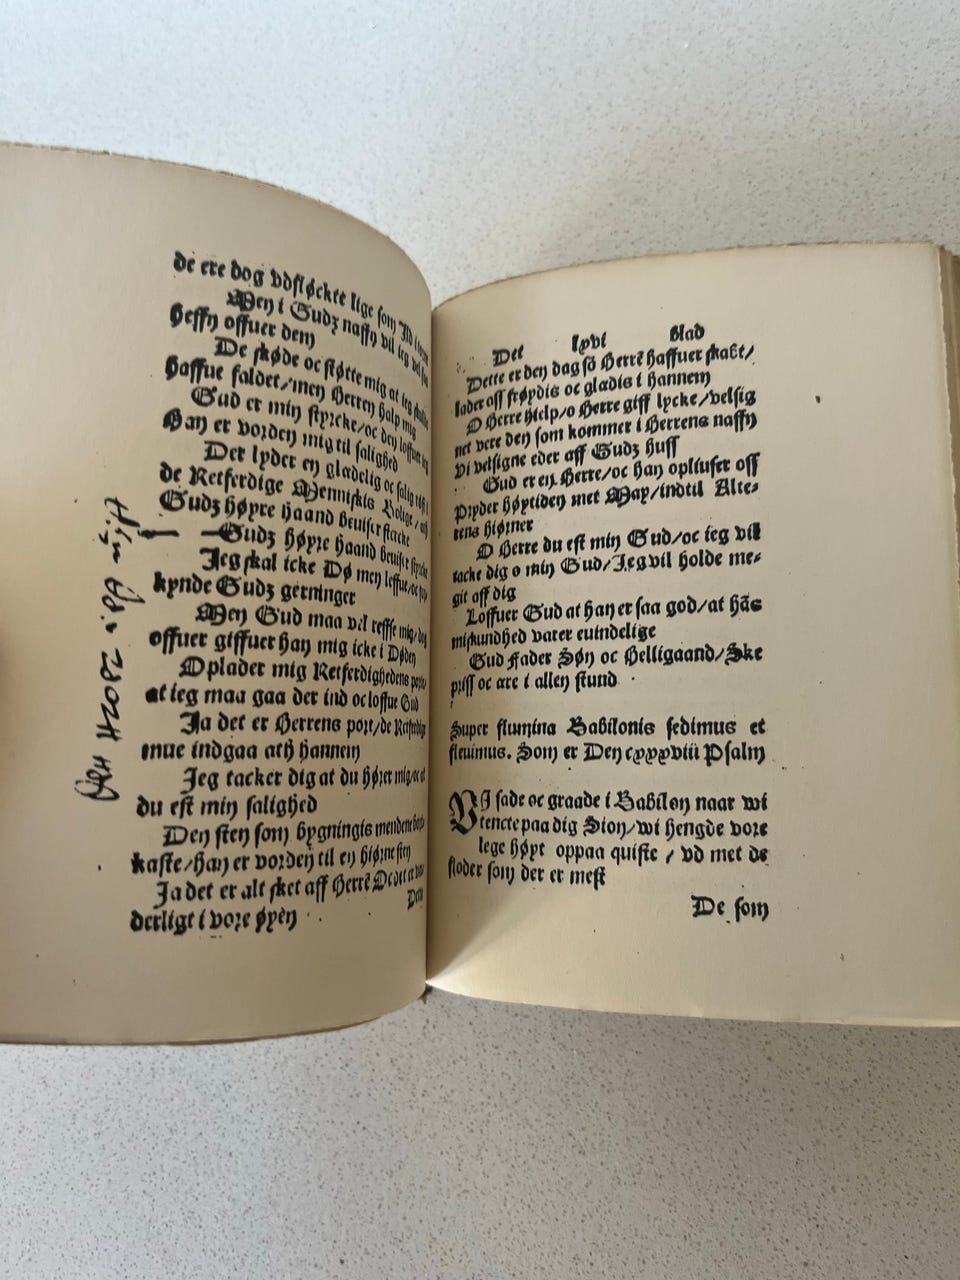 de ere dog vdsløckte lige som Ild i
Men i Gudz naffn vil ieg vel
heffn offuer dem
De skøde oc støtte mig at ieg skulle
haffue faldet/men Herren halp mig
Gud er min styrcke/oc den loffuer ieg
Han er vorden mig til salighed
Der lyder en gladelig oc salig røst i
de Retferdige Menniskis Bolige/
Gudz høyre haand beuiser stercke
Gudz høyre haand beuiser styrcke
Jeg skal icke Dø men leffue/oc
kynde Gudz gerninger
Men Gud maa vel reffse mig/dog
offuer giffuer han mig icke i Døden
Oplader mig Retferdighedens
at ieg maa gaa der ind oc loffue Gud
Ja det er Herrens port/de Retferdige
mue indgaa ath hannem
Jeg tacker dig at du hører mig/oc at
du est min salighed
Den sten som bygningis mendene
kaste/han er vorden til en hiørne sten
Ja det er alt sket aff Herrē De det er
derligt i vore øyen
Det lxvi blad
Dette er den dag sō Herrē haffuer skabt/
lader oss frøydis oc gladis i hannem
O Herre hielp/o Herre giff lycke/velsig
net vere den som kommer i Herrens naffn
Vi velsigne eder aff Gudz huss
Gud er en Herre/oc han opliuser oss
Pryder høytiden met May/indtil Alte⸗
rens hiørner
O Herre du est min Gud/oc ieg vil
tacke dig o min Gud/Jeg vil holde me⸗
git aff dig
Loffuer Gud at han er saa god/at hās
miskundhed varer euindelige
Gud Fader Søn oc Helligaand/Ske
priss oc ære i allen stund
Super flumina Babilonis sedimus et
fleuimus. Som er Den cxxxviii Psalm
VJ sade oc graade i Babilon naar wi
tencte paa dig Sion/wi hengde vore
lege høyt oppaa quiste / vd met de
floder som der er mest
De som